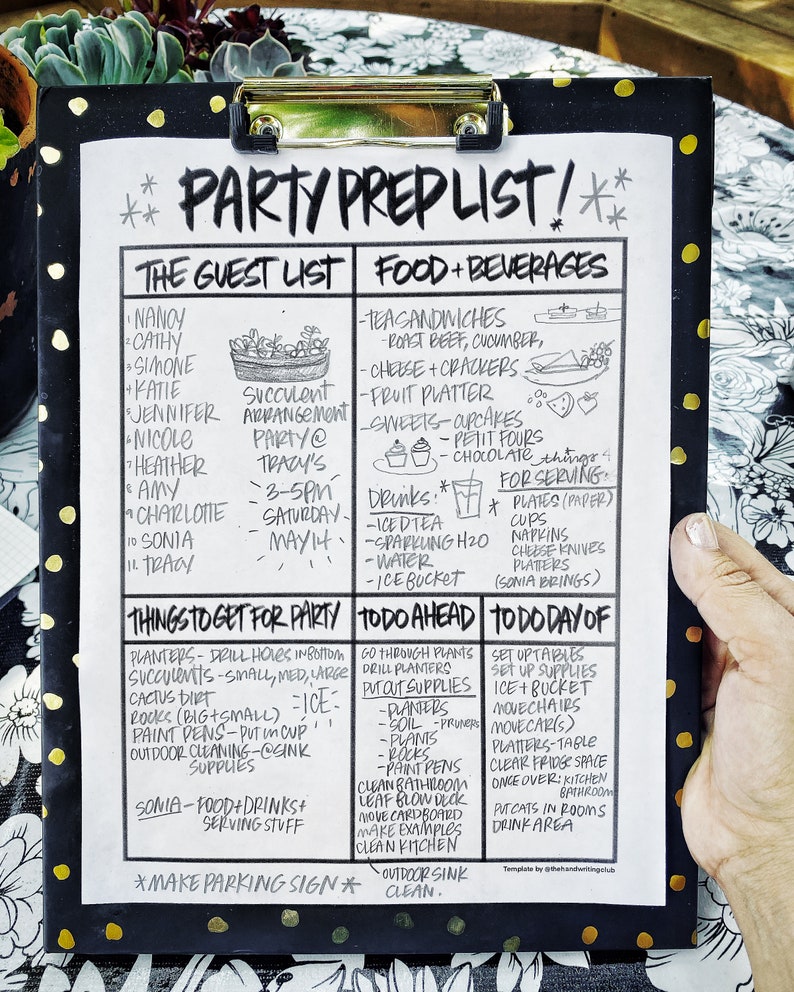 PARTY PREP LIST!
THE GUEST LIST
1 NANCY
2 CATHY
3 SIMONE
4 KATIE
5 JENNIFER
6 NICOLE
7 HEATHER
8 AMY
9 CHARLOTTE
10 SONIA
11. TRACY
SUCCULENT
ARRANGEMENT
PARTY @
TRACY'S
3-5PM
SATURDAY
MAY 14
FOOD + BEVERAGES
-TEA SANDWICHES
-ROAST BEEF, CUCUMBER,
-CHEESE + CRACKERS
-FRUIT PLATTER
-SWEETS- CUPCAKES
- PETIT FOURS
- CHOCOLATE
DRINKS:
-ICED TEA
-SPARKLING H2O
-WATER
-ICE BUCKET
things 4
FOR SERVING:
* PLATES (PAPER)
CUPS
NAPKINS
CHEESE KNIVES
PLATTERS
(SONIA BRINGS)
THINGS TO GET FOR PARTY
PLANTERS- DRILL HOLES IN BOTTOM
SUCCULENTS -SMALL, MED, LARGE
CACTUS DIRT
ROCKS (BIG + SMALL)
-ICE-
PAINT PENS- PUT IN CUP
OUTDOOR CLEANING-@SINK
SUPPLIES
SONIA - FOOD + DRINKS +
SERVING STUFF
TO DO AHEAD
GO THROUGH PLANTS
DRILL PLANTERS
PUT OUT SUPPLIES
-PLANTERS
-SOIL -PRUNERS
-PLANTS
-ROCKS
-PAINT PENS
CLEAN BATHROOM
LEAF BLOW DECK
MOVE CARDBOARD
MAKE EXAMPLES
CLEAN KITCHEN
OUTDOOR SINK
CLEAN.
TO DO DAY OF
SET UP TABLES
SET UP SUPPLIES
ICE + BUCKET
MOVE CHAIRS
MOVE CAR(S)
PLATTERS-TABLE
CLEAR FRIDGE SPACE
ONCE OVER: KITCHEN
BATHROOM
PUT CATS IN ROOMS
DRINK AREA
*MAKE PARKING SIGN*
Template by @thehandwritingclub